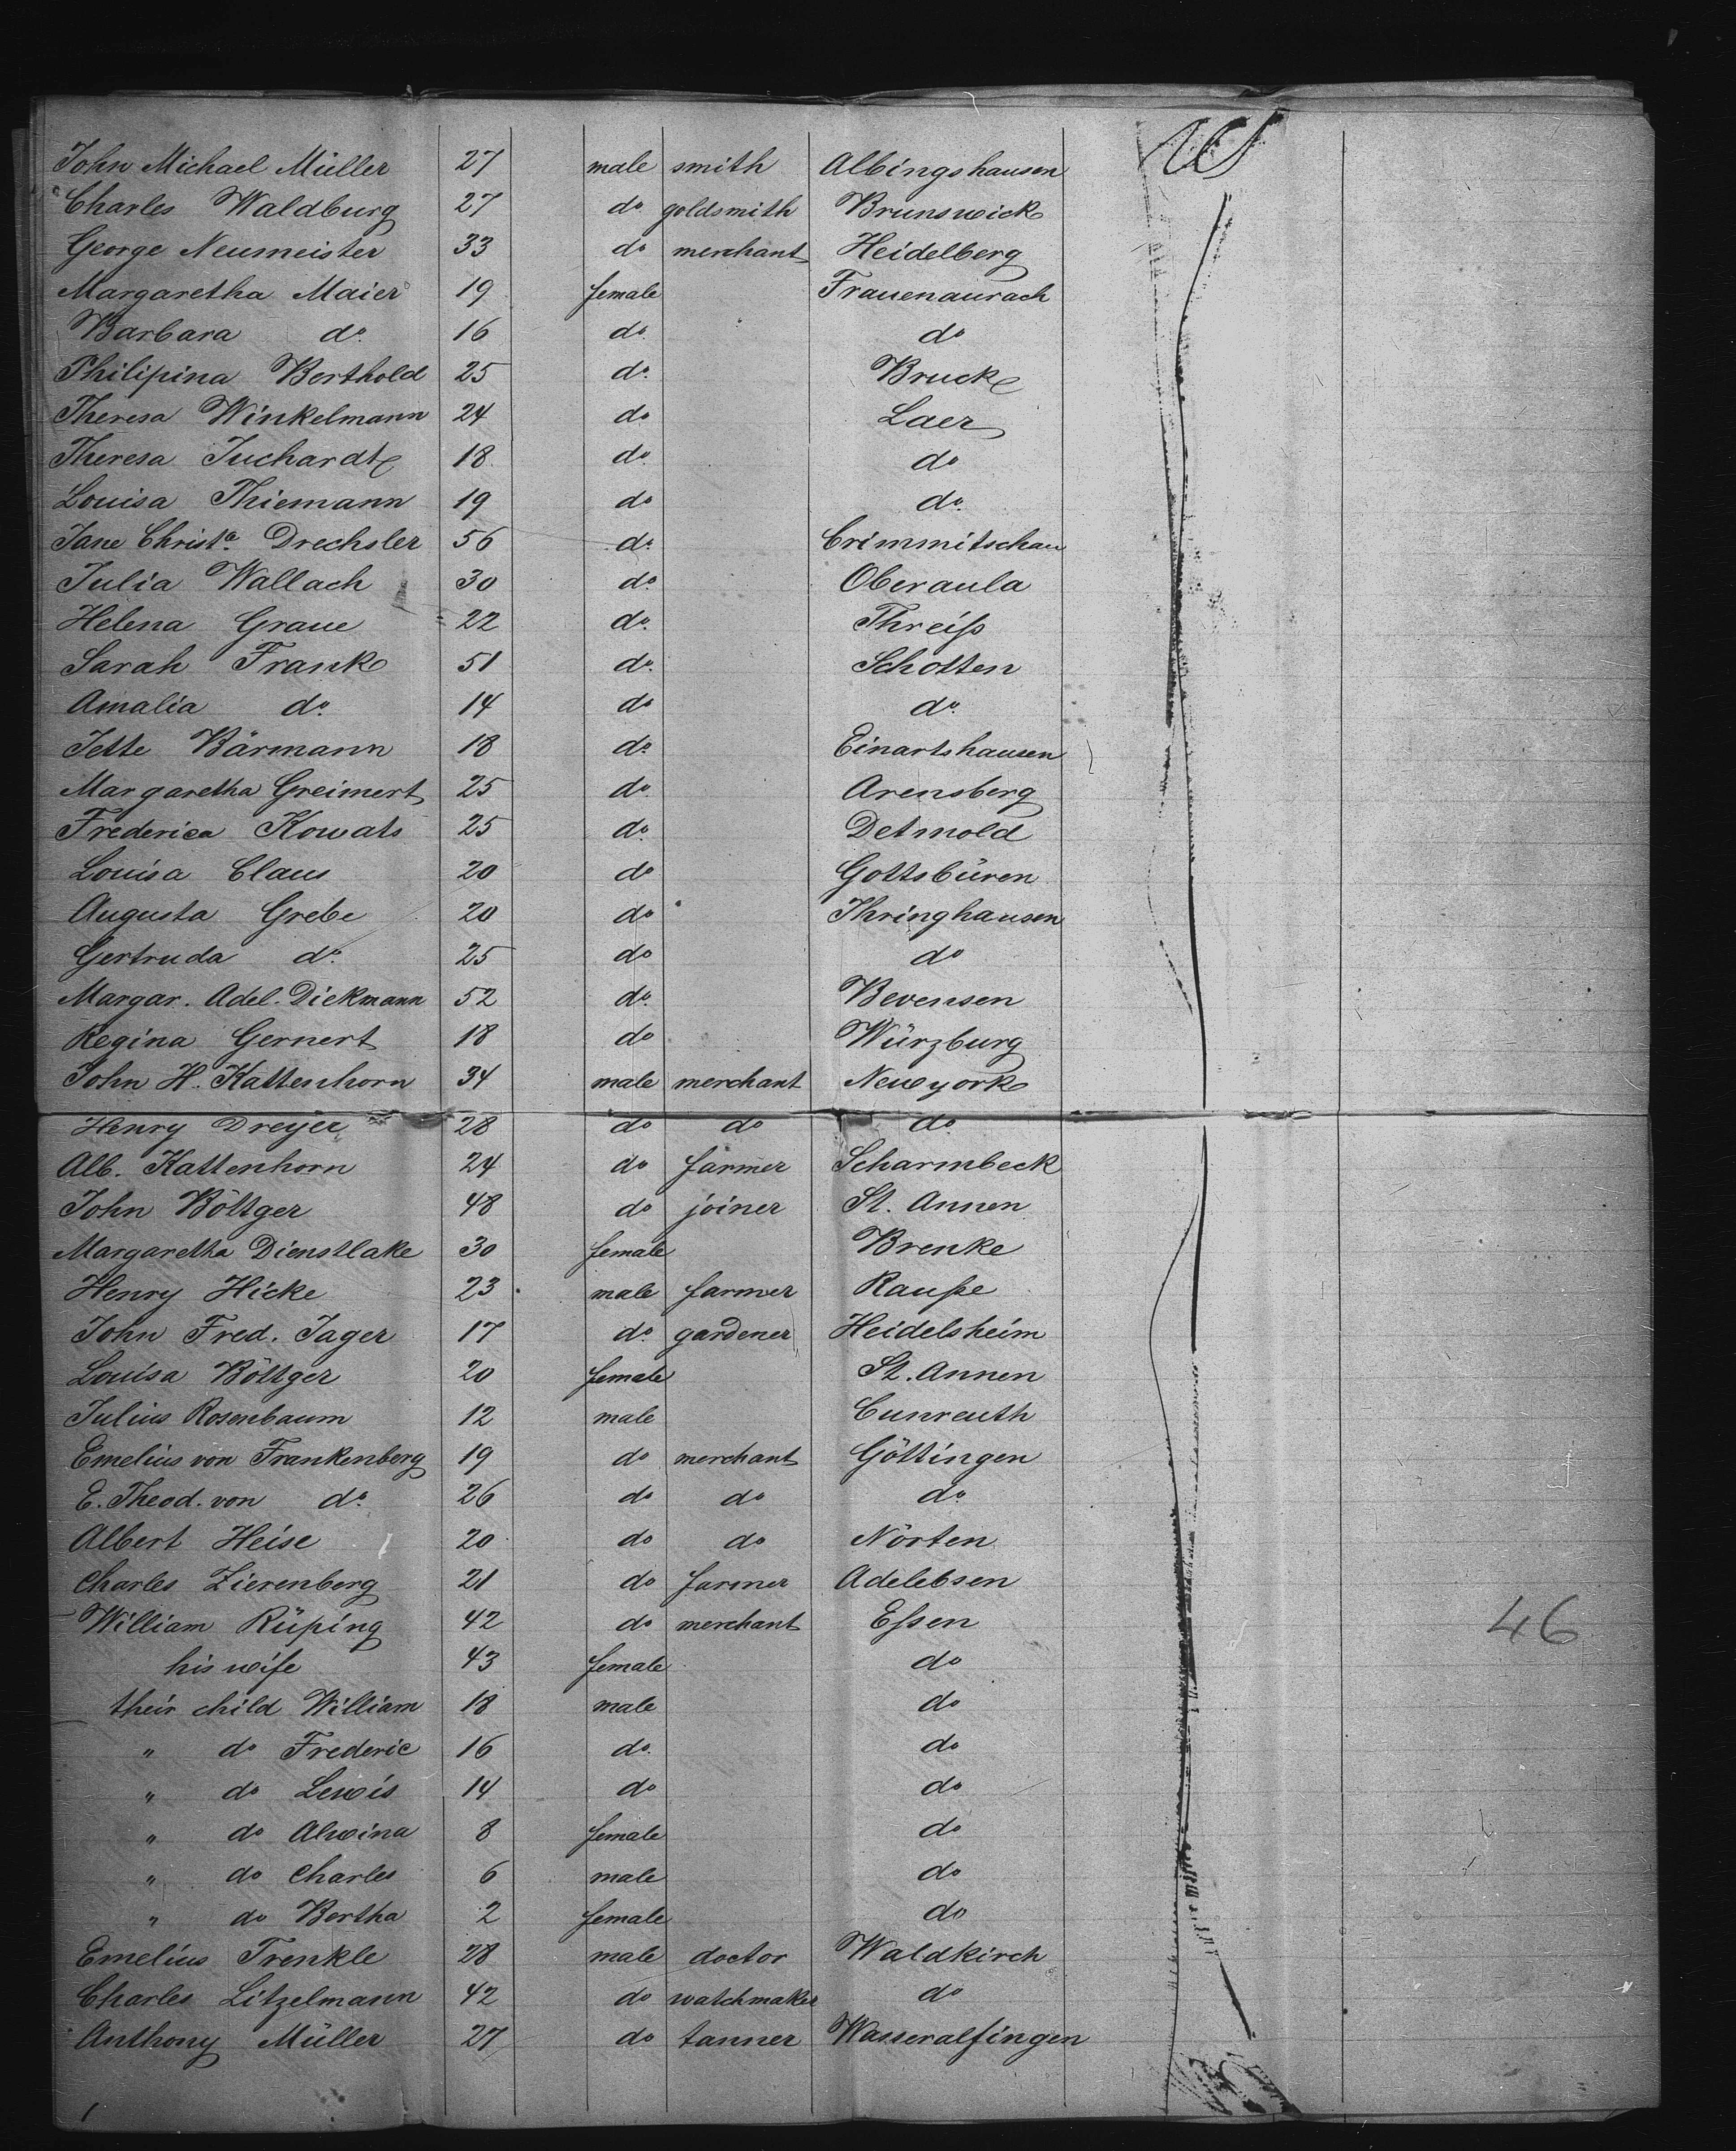 John Michael Müller 27 male smith Albingshausen US
Charles Waldburg 27 do goldsmith Brunswick
George Neumeister 33 do merchant Heidelberg
Margaretha Maier 19 female Frauenaurach
Barbara do 16 do do
Philipina Berthold 25 do Bruck
Theresa Winkelmann 24 do Laer
Theresa Juchardt 18 do do
Louisa Thiemann 19 do do
Jane Christa. Drechsler 56 do Crimmitschau
Julia Wallach 30 do Oberaula
Helena Graue 22 do Threiß
Sarah Frank 51 do Schotten
Amalia do 14 do do
Jette Bärmann 18 do Einartshausen
Margaretha Greimert 25 do Arensberg
Frederica Kowats 25 do Detmold
Louisa Claus 20 do Gottsbüren
Augusta Grebe 20 do Ihringhausen
Gertruda do 25 do do
Margar. Adel. Diekmann 52 do Bevensen
Regina Gernert 18 do Würzburg
John H. Kattenhorn 34 male merchant Newyork
Henry Dreyer 28 do do do
Alb. Kattenhorn 24 do farmer Scharmbeck
John Böttger 48 do joiner St. Annen
Margaretha Dienstlake 30 female Brenke
Henry Hicke 23 male farmer Rauße
John Fred. Jager 17 do gardener Heidelsheim
Louisa Böttger 20 female St. Annen
Julius Rosenbaum 12 male Cunreuth
Emelius von Frankenberg 19 do merchant Göttingen
E. Theod. von do 26 do do do
Albert Heise 20 do do Nörten
Charles Zierenberg 21 do farmer Adelebsen
William Rüping 42 do merchant Eßen 46
his wife 43 female do
their child William 18 male do
" do Frederic 16 do do
" do Lewis 14 do do
" do Alwina 8 female do
" do Charles 6 male do
" do Bertha 2 female do
Emelius Trenkle 28 male doctor Waldkirch
Charles Litzelmann 42 do watchmaker do
Anthony Müller 27 do tanner Wasseralfingen